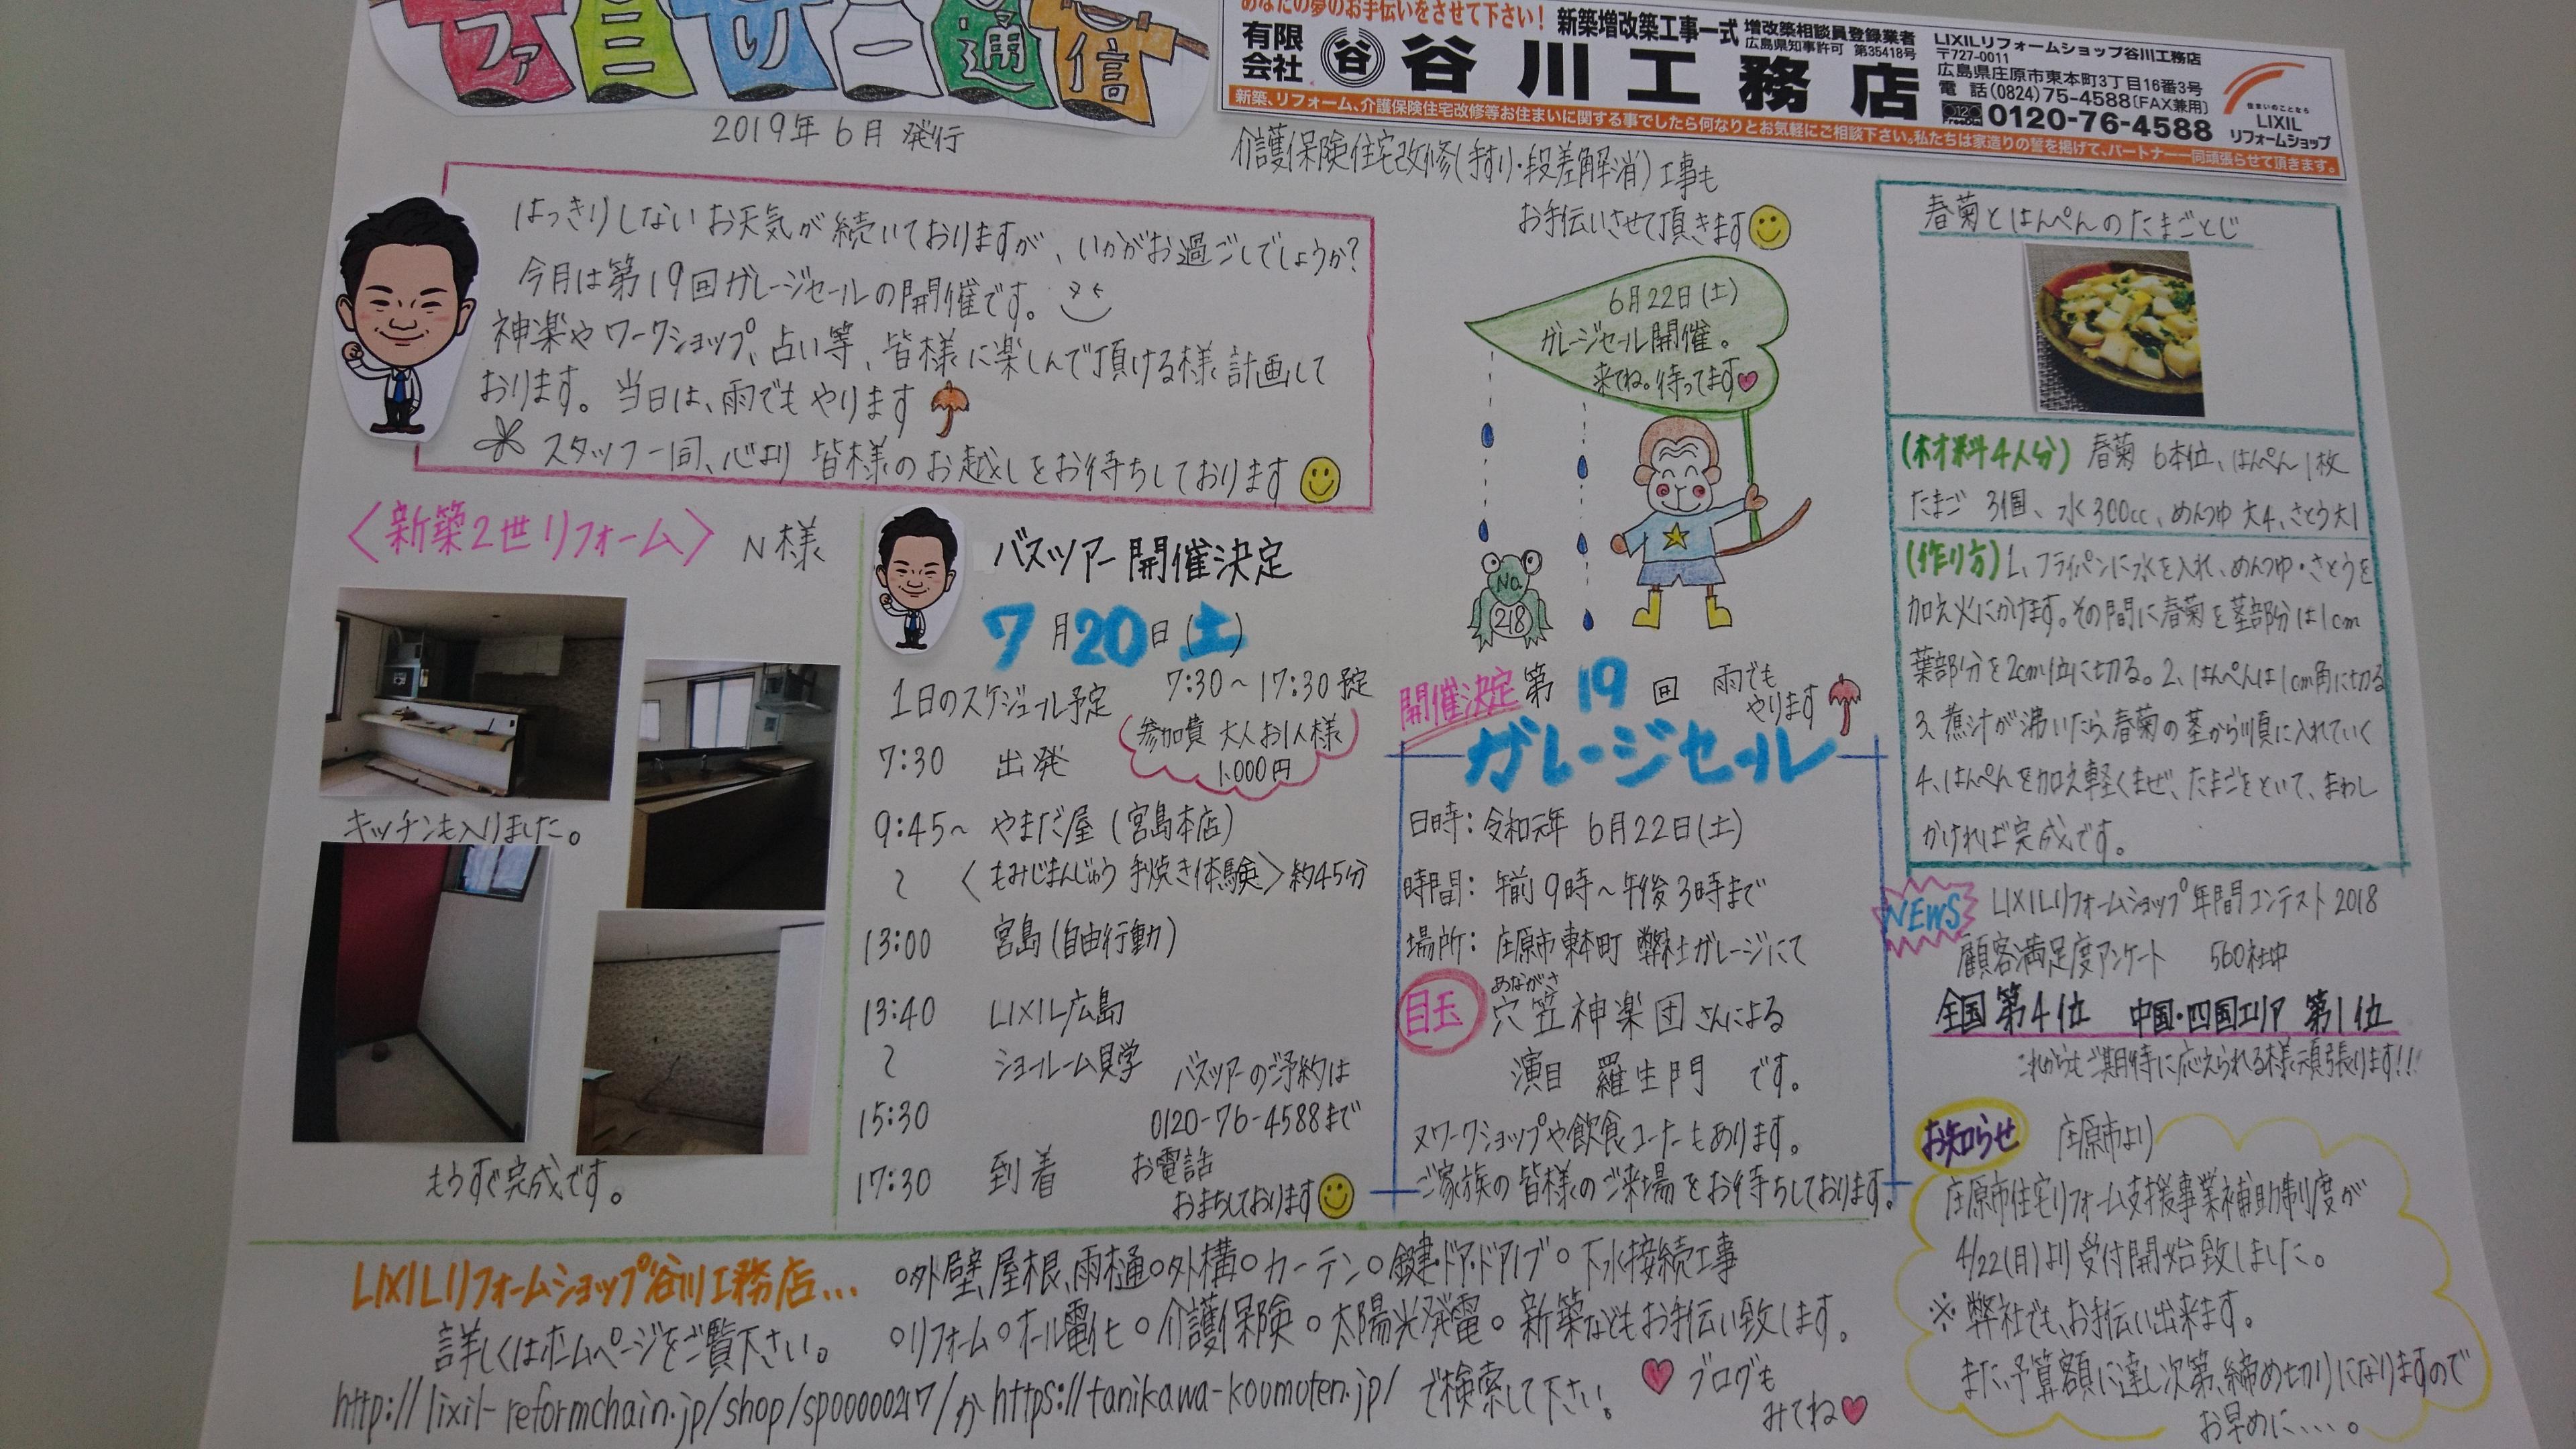 ファミリー通信
2019年6月発行
あなたの夢のお手伝いをさせて下さい!
新築増改築工事一式
増改築相談員登録業者
広島県知事許可 第35418号
有限会社 谷 谷川工務店
LIXILリフォームショップ谷川工務店
〒727-0011
広島県庄原市東本町3丁目16番3号
電 話(0824)75-4588〔FAX兼用〕
0120-76-4588
住まいのことなら
LIXIL
リフォームショップ
新築、リフォーム、介護保険住宅改修等お住まいに関する事でしたら何なりとお気軽にご相談下さい。私たちは家造りの誓を掲げて、パートナー一同頑張らせて頂きます。
介護保険住宅改修(手すり・段差解消)工事も
お手伝いさせて頂きます
はっきりしないお天気が続いておりますが、いかがお過ごしでしょうか?
今月は第19回ガレージセールの開催です。
神楽やワークショップ、占い等、皆様に楽しんで頂ける様計画して
おります。当日は、雨でもやります
スタッフ一同、心より皆様のお越しをお待ちしております
6月22日(土)
ガレージセール開催。
来てね。待ってます
No.
218
〈新築2世リフォーム〉 N様
キッチンも入りました。
もうすぐ完成です。
バスツアー開催決定
7月20日(土)
7:30~17:30予定
1日のスケジュール予定
参加費 大人お1人様
1,000円
7:30 出発
9:45~ やまだ屋(宮島本店)
~ 〈もみじまんじゅう 手焼き体験〉約45分
13:00 宮島(自由行動)
13:40 LIXIL広島
~ ショールーム見学
15:30
17:30 到着
バスツアーのご予約は
0120-76-4588まで
お電話
おまちしております
開催決定 第19回 雨でも
やります
ガレージセール
日時: 令和元年 6月22日(土)
時間: 午前9時~午後3時まで
場所: 庄原市東本町 弊社ガレージにて
目玉 あながさ
穴笠神楽団さんによる
演目 羅生門 です。
又ワークショップや飲食コーナーもあります。
ご家族の皆様のご来場をお待ちしております。
春菊とはんぺんのたまごとじ
(材料4人分) 春菊 6本位、はんぺん1枚
たまご 3個、水300cc、めんつゆ 大4、さとう大1
(作り方) 1、フライパンに水を入れ、めんつゆ・さとうを
加え火にかけます。その間に春菊を茎部分は1cm
葉部分を2cm位に切る。2、はんぺんは1cm角に切る
3、煮汁が沸いたら、春菊の茎から順に入れていく
4、はんぺんを加え軽くまぜ、たまごをといて、まわし
かければ完成です。
NEWS LIXILリフォームショップ年間コンテスト2018
顧客満足度アンケート 560社中
全国第4位 中国・四国エリア 第1位
これからもご期待に応えられる様頑張ります!!
お知らせ 庄原市より
庄原市住宅リフォーム支援事業補助制度が
4/22(月)より受付開始致しました。
※弊社でも、お手伝い出来ます。
また、予算額に達し次第、締め切りになりますので
お早めに・・・・。
LIXILリフォームショップ谷川工務店...
詳しくはホームページをご覧下さい。
○外壁、屋根、雨樋○外構○カーテン○鍵・ドア・ドアノブ○下水接続工事
○リフォーム○オール電化○介護保険○太陽光発電○新築などもお手伝い致します。
http://lixil-reformchain.jp/shop/sp00000217/か https://tanikawa-koumuten.jp/ で検索して下さい。
ブログも
みてね